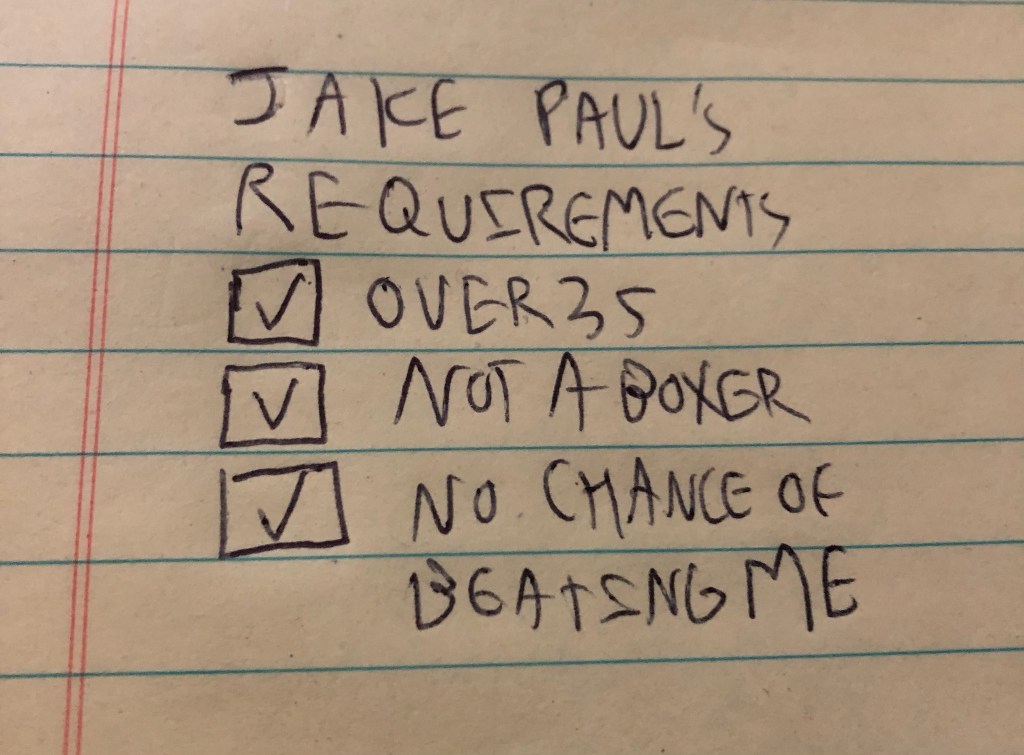 JAKE PAUL'S
REQUIREMENTS
☑ OVER 35
☑ NOT A BOXER
☑ NO CHANCE OF
BEATING ME